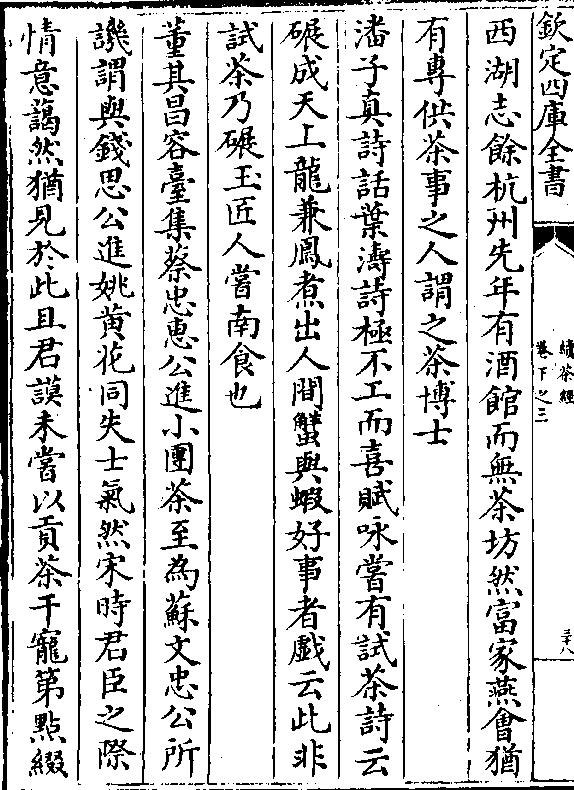 欽定四庫全書
續茶經
卷下之三
三十八
西湖志餘杭州先年有酒館而無茶坊然富家燕會猶
有專供茶事之人謂之茶博士
潘子真詩話葉濤詩極不工而喜賦咏嘗有試茶詩云
碾成天上龍兼鳳煮出人間蟹與蝦好事者戲云此非
試茶乃碾玉匠人嘗南食也
董其昌容臺集蔡忠惠公進小團茶至為蘇文忠公所
譏謂與錢思公進姚黄花同失士氣然宋時君臣之際
情意藹然猶見於此且君謨未嘗以貢茶干寵第點綴